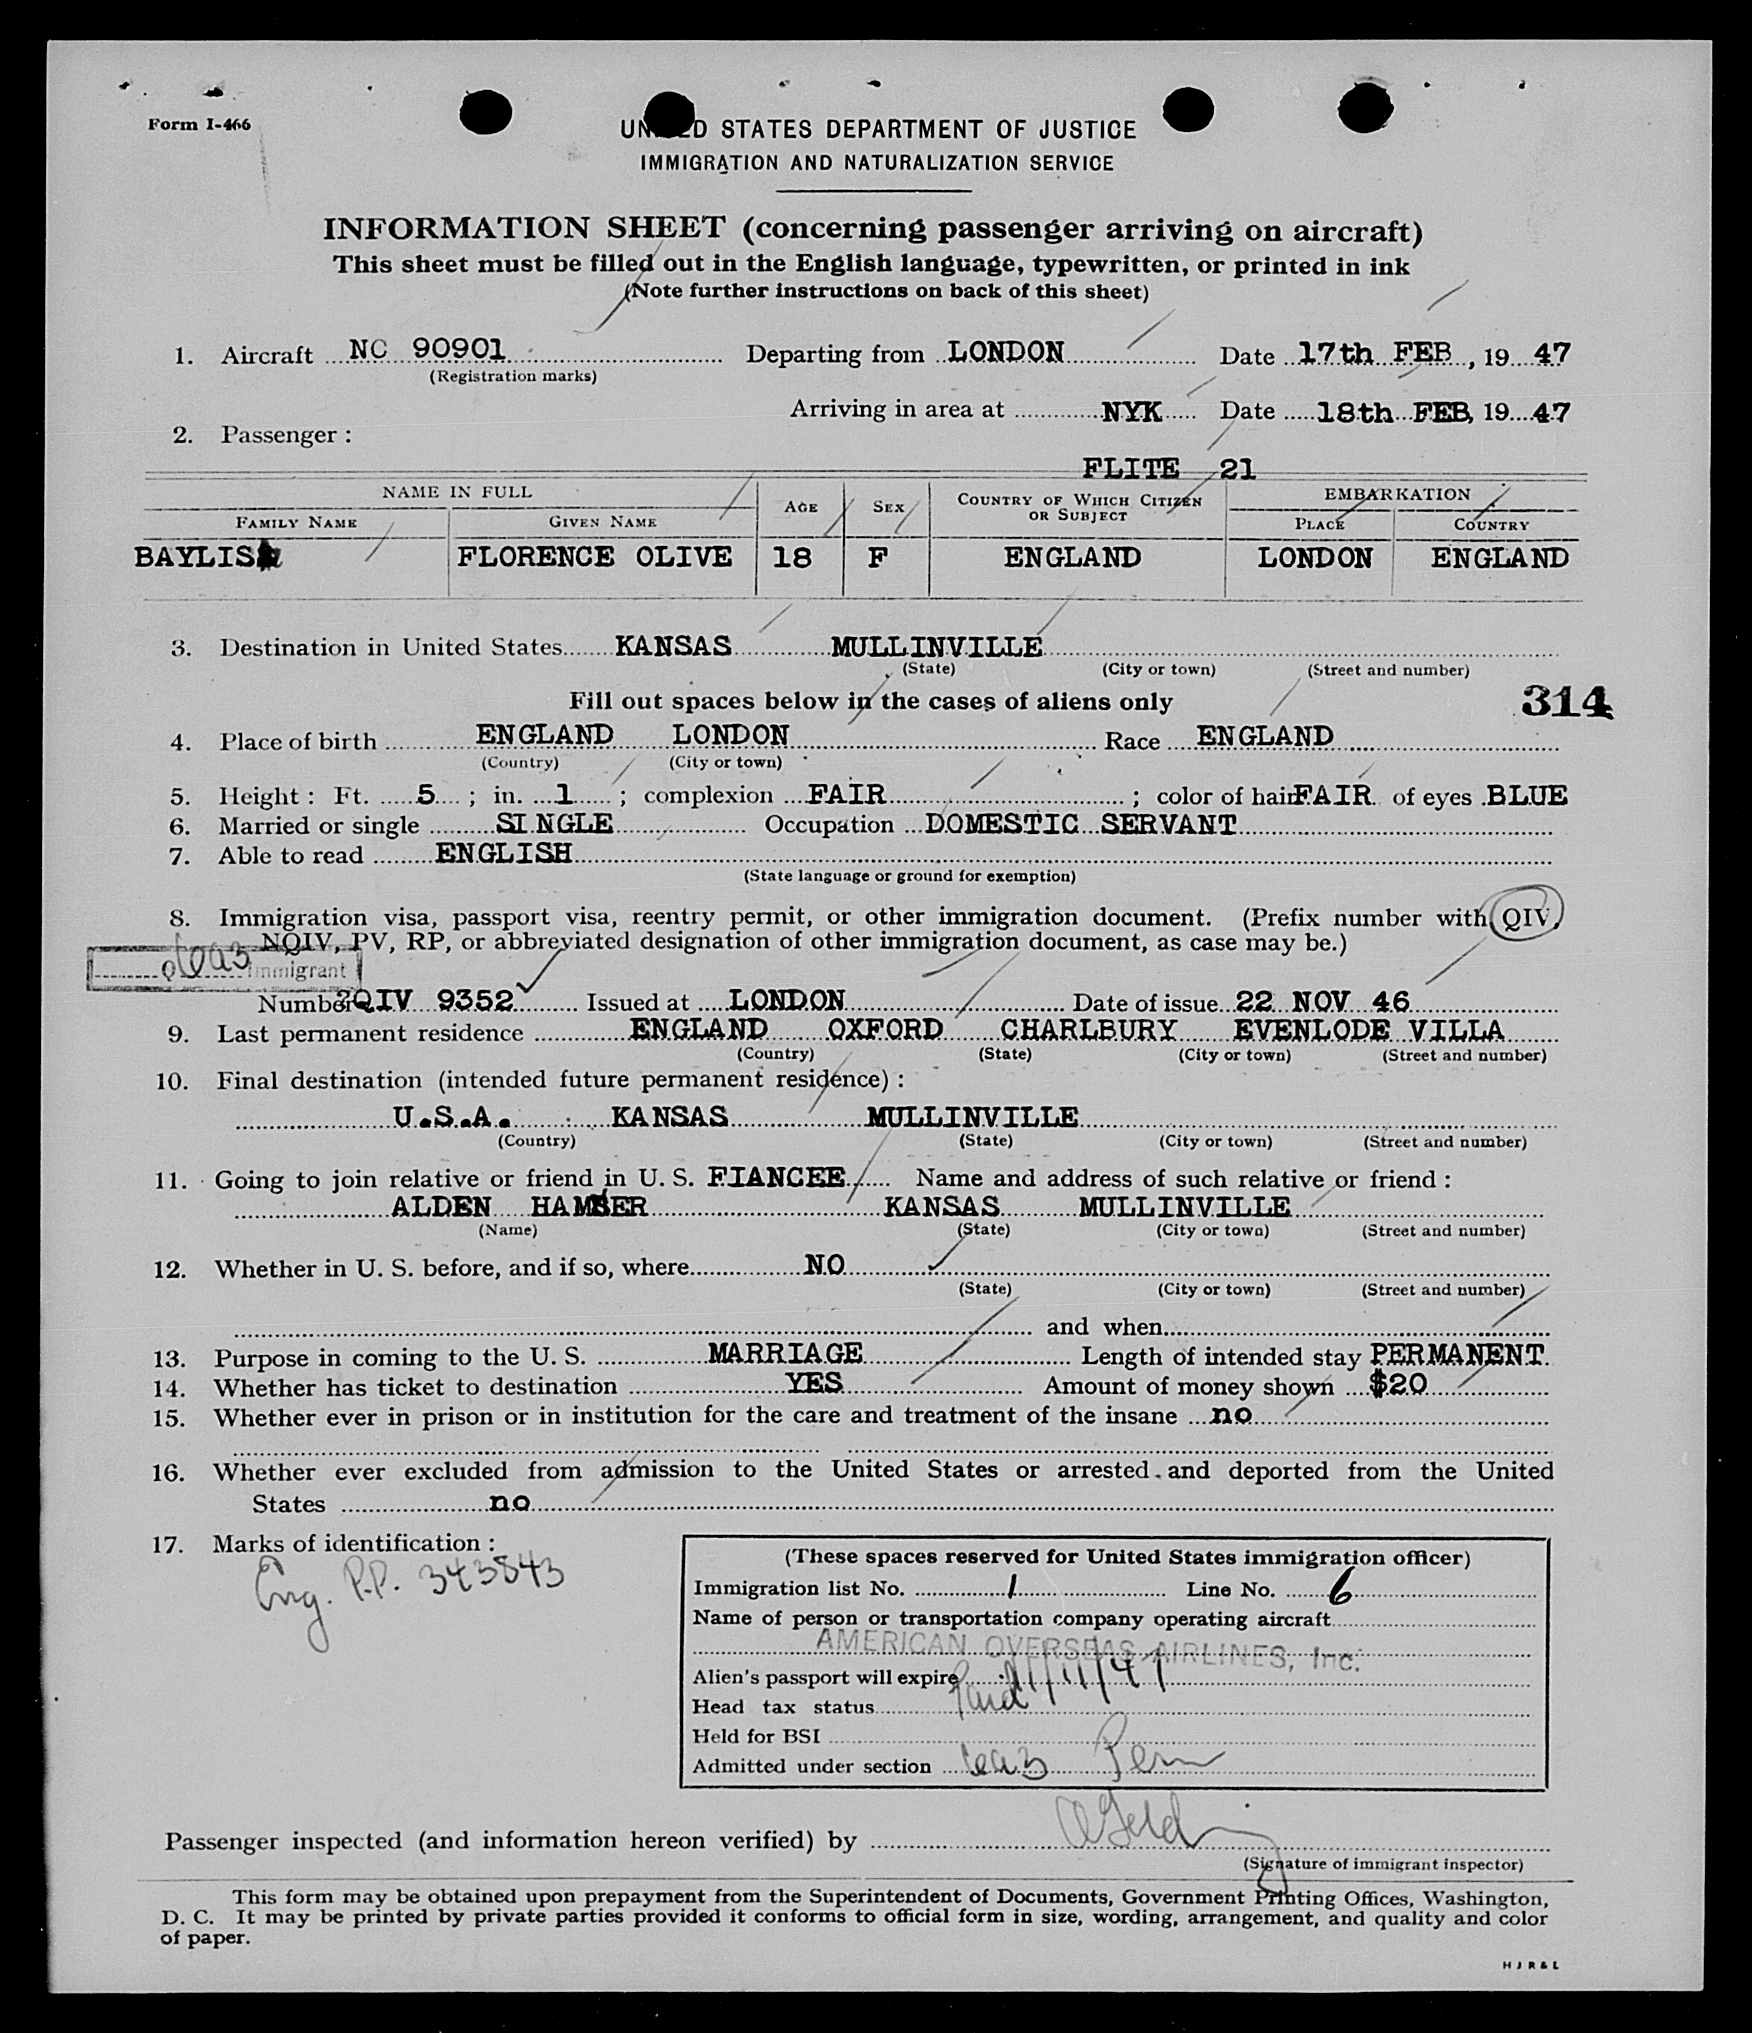 Form I-466
UNITED STATES DEPARTMENT OF JUSTICE
IMMIGRATION AND NATURALIZATION SERVICE
INFORMATION SHEET (concerning passenger arriving on aircraft)
This sheet must be filled out in the English language, typewritten, or printed in ink
(Note further instructions on back of this sheet)
1. Aircraft NC 90901 Departing from LONDON Date 17th FEB, 19 47
(Registration marks)
Arriving in area at NYK Date 18th FEB, 19 47
2. Passenger:
FLITE 21
NAME IN FULL AGE SEX COUNTRY OF WHICH CITIZEN OR SUBJECT EMBARKATION
FAMILY NAME GIVEN NAME PLACE COUNTRY
BAYLIS FLORENCE OLIVE 18 F ENGLAND LONDON ENGLAND
3. Destination in United States KANSAS MULLINVILLE
(State) (City or town) (Street and number)
Fill out spaces below in the cases of aliens only 314
4. Place of birth ENGLAND LONDON Race ENGLAND
(Country) (City or town)
5. Height: Ft. 5; in. 1; complexion FAIR; color of hair FAIR of eyes BLUE
6. Married or single SINGLE Occupation DOMESTIC SERVANT
7. Able to read ENGLISH
(State language or ground for exemption)
8. Immigration visa, passport visa, reentry permit, or other immigration document. (Prefix number with QIV,
NQIV, PV, RP, or abbreviated designation of other immigration document, as case may be.)
Immigrant
Number QIV 9352 Issued at LONDON Date of issue 22 NOV 46
9. Last permanent residence ENGLAND OXFORD CHARLBURY EVENLODE VILLA
(Country) (State) (City or town) (Street and number)
10. Final destination (intended future permanent residence):
U.S.A. KANSAS MULLINVILLE
(Country) (State) (City or town) (Street and number)
11. Going to join relative or friend in U. S. FIANCEE Name and address of such relative or friend:
ALDEN KANSAS MULLINVILLE
(Name) (State) (City or town) (Street and number)
12. Whether in U. S. before, and if so, where NO
(State) (City or town) (Street and number)
and when
13. Purpose in coming to the U. S. MARRIAGE Length of intended stay PERMANENT
14. Whether has ticket to destination YES Amount of money shown $20
15. Whether ever in prison or in institution for the care and treatment of the insane no
16. Whether ever excluded from admission to the United States or arrested and deported from the United
States no
17. Marks of identification:
Eng. P.P. 343843
(These spaces reserved for United States immigration officer)
Immigration list No. 1 Line No. 6
Name of person or transportation company operating aircraft
AMERICAN OVERSEAS AIRLINES, Inc.
Alien's passport will expire 11/11/47
Head tax status Paid
Held for BSI
Admitted under section 4a3 Perm
Passenger inspected (and information hereon verified) by
(Signature of immigrant inspector)
This form may be obtained upon prepayment from the Superintendent of Documents, Government Printing Offices, Washington,
D. C. It may be printed by private parties provided it conforms to official form in size, wording, arrangement, and quality and color
of paper.
H J R & L